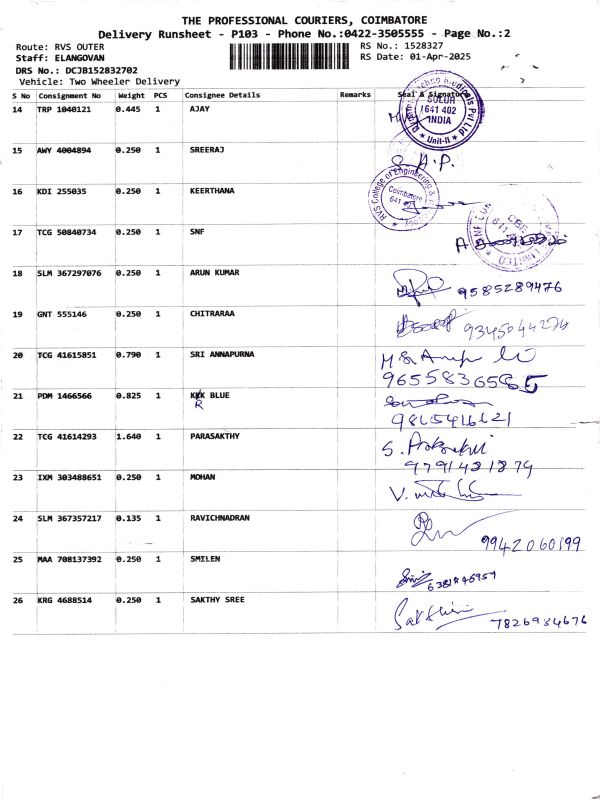 THE PROFESSIONAL COURIERS, COIMBATORE
Delivery Runsheet - P103 - Phone No.:0422-3505555 - Page No.:2
Route: RVS OUTER
RS No.: 1528327
Staff: ELANGOVAN
RS Date: 01-Apr-2025
DRS No.: DCJB152832702
Vehicle: Two Wheeler Delivery
S No Consignment No Weight PCS Consignee Details Remarks Seal & Signature
14 TRP 1040121 0.445 1 AJAY
SULUR
641 402
INDIA
Unit-II
15 AWY 4004894 0.250 1 SREERAJ
S.A.P.
16 KDI 255035 0.250 1 KEERTHANA
RVS College of Engineering &
Coimbatore
641
17 TCG 50840734 0.250 1 SNF
CBE
LIMITED
18 SLM 367297076 0.250 1 ARUN KUMAR
9585289476
19 GNT 555146 0.250 1 CHITRARAA
9345044274
20 TCG 41615851 0.790 1 SRI ANNAPURNA
21 PDM 1466566 0.825 1 BLUE
R
22 TCG 41614293 1.640 1 PARASAKTHY
9791421874
23 IXM 303488651 0.250 1 MOHAN
24 SLM 367357217 0.135 1 RAVICHNADRAN
9942060199
25 MAA 708137392 0.250 1 SMILEN
26 KRG 4688514 0.250 1 SAKTHY SREE
7826934676